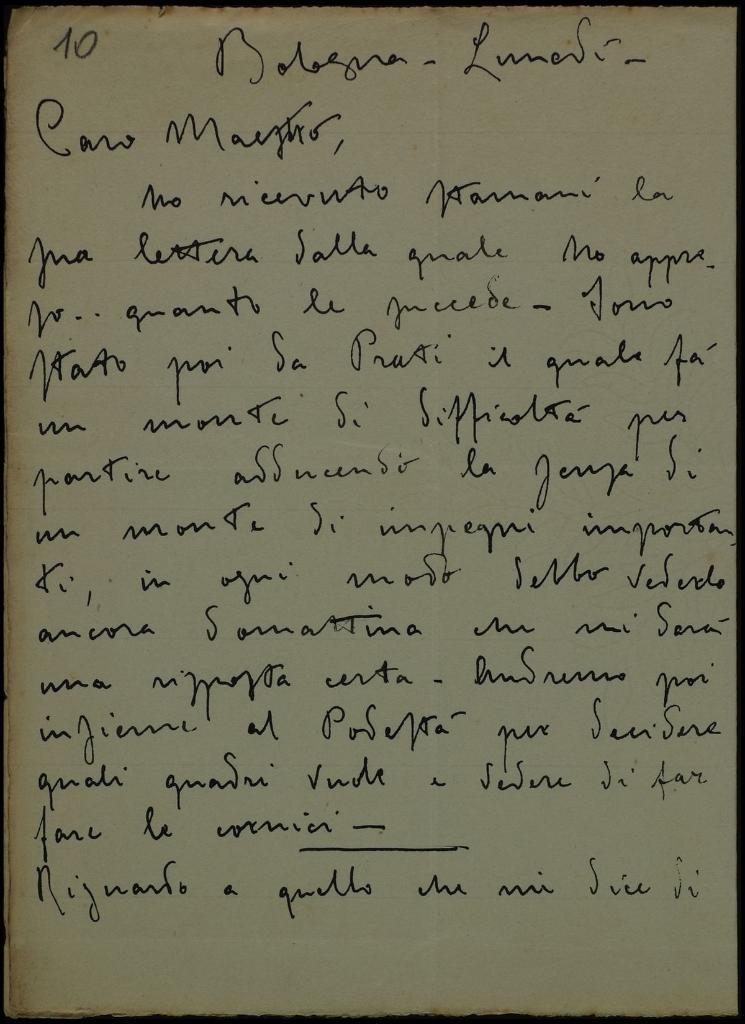 10
Bologna - Lunedì -
Caro Maestro,
ho ricevuto stamani la
sua lettera dalla quale ho appre-
so.. quanto le succede - Sono
stato poi da Prati il quale fà
un monte di difficoltà per
partire adducendo la scusa di
un monte di impegni importan-
ti, in ogni modo debbo vederlo
ancora domattina che mi darà
una risposta certa - Andremo poi
insieme al Podestà per decidere
quali quadri vuole e vedere di far
fare le cornici -
Riguardo a quello che mi dice di